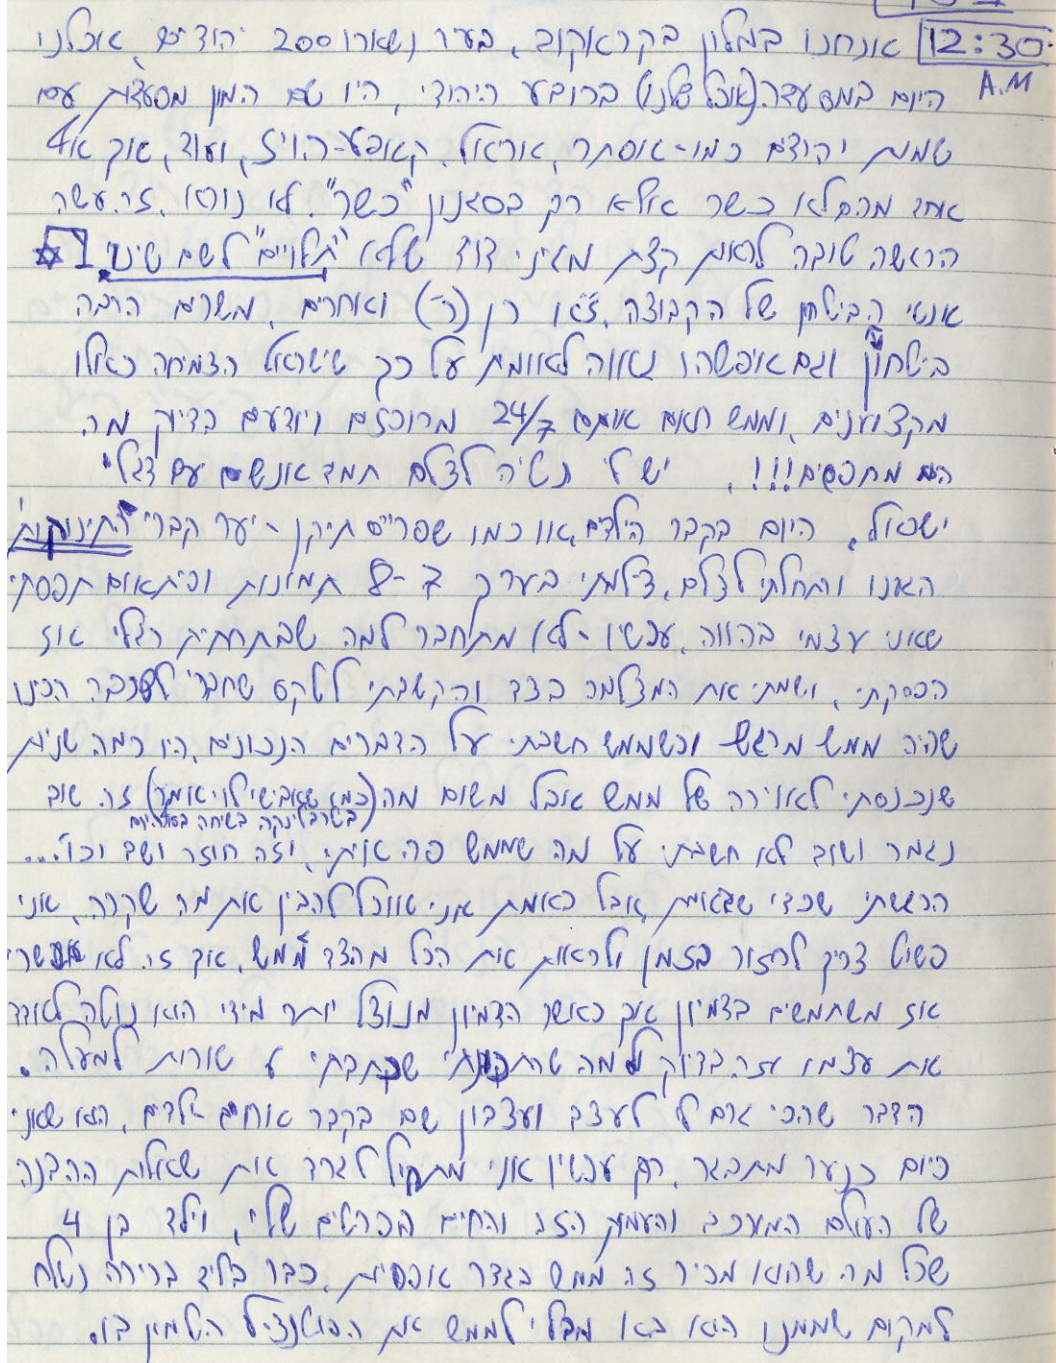 12:30 אנחנו במלון בקראקוב, בעיר נשארו 200 יהודים, אכלנו
A.M היום במסעדה (אוכל שלנו) ברובע היהודי, היו שם המון מסעדות עם
שמות יהודים כמו - אסתר, אריאל, קאופט-הויז, ועוד, אך אף
אחד מהם לא כשר אלא רק בסגנון "כשר". לא נורא. זה עשה
הרגשה טובה לראות קצת מגיני דוד שלא "תלויים" לשם שינוי.
אנשי הביטחון של הקבוצה, צ'או רן (ה-) ואחרים, משרים הרבה
ביטחון וגם איפשהו גאווה לאומית על כך שישראל הצמיחה כאלו
מקצוענים, וממש רואים אותם 24/7 מרוכזים ויודעים בדיוק מה
הם מחפשים!!!, יש לי נטיה לצלם תמיד אנשים עם דגלי
ישראל, היום בקבר הילדים, או כמו שפריים תיקן - יער קברי התינוקות
הגענו והתחלתי לצלם, צילמתי בערך 7-8 תמונות ופיתאום תפסתי
שאני עצמי בהווה, עכשיו - לא מתחבר למה שבתחתית רגלי אז
הפסקתי, ושמתי את המצלמה בצד והקשבתי לטקס שחברי הכינו
שהיה ממש מרגש וכשממש חשבתי על הדברים הנכונים, היו כמה שניות
שנכנסתי לאוירה של ממש אבל משום מה (כמו שאבישי לוי אומר) זה שוב
(בטרבלינקה בשיחה
נגמר ושוב לא חשבתי על מה שממש פה איתי, וזה חוזר ושב וכו'...
הרגשתי שכדי שבאמת, אבל באמת אני אוכל להבין את מה שקרה, אני
פשוט צריך לחזור בזמן ולראות את הכל מהצד ממש, אך זה לא אפשרי
אז משתמשים בדמיון אך כאשר הדמיון מנוצל יותר מידי הוא נוטה לאבד
את עצמו וזה בדיוק למה שהתכוונתי שכתבתי 4 שורות למעלה.
הדבר שהכי גרם לי לעצב ועצבון שם בקבר אותם ילדים, הוא שאני
כיום כנער מתבגר, רק עכשיו אני מתחיל לגרד את שאלות ההבנה
של העולם המורכב והעמוק הזה והחיים הפרטיים שלי, וילד בן 4
שכל מה שהוא מכיר זה ממש בגדר אפסיות, כבר בלית ברירה נשלח
למקום שממנו הוא בא מבלי לממש את הפוטנציאל הטמון בו.